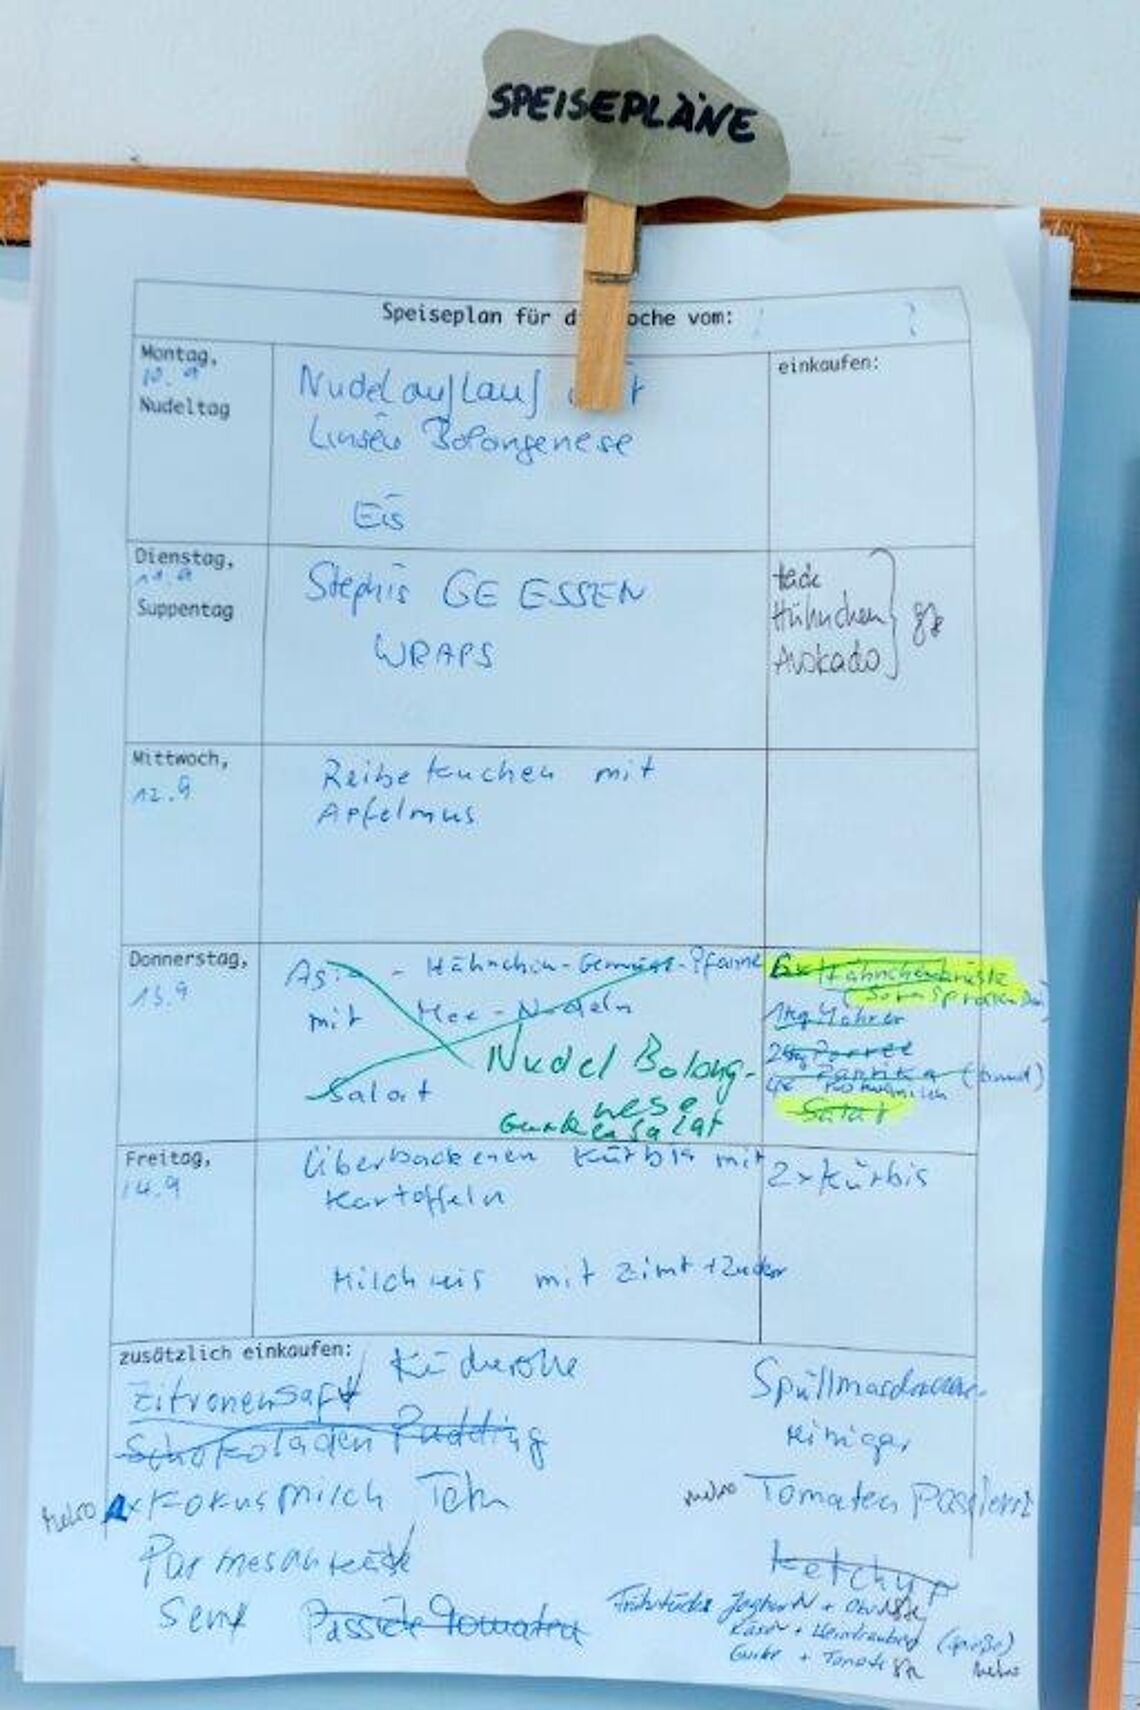 SPEISEPLÄNE
Speiseplan für d oche vom:
Montag,
10.9
Nudeltag
Nudelauflauf
Linsen Bolongenese
Eis
einkaufen:
Dienstag,
11.9
Suppentag
Stephis GE ESSEN
WRAPS
Hack
Hühnchen
Avokado
Mittwoch,
12.9
Reibekuchen mit
Apfelmus
Donnerstag,
13.9
Asia - Hähnchen-Gemüse-Pfanne
mit Mee-Nudeln
Salat
Nudel Bolong-
nese
Gurkensalat
6x Hähnchenbrüste
1kg Möhren
2kg Porree
4x Paprika (bunt)
Kokosmilch
Salat
Freitag,
14.9
Überbackenen Kürbis mit
Kartoffeln
Milchreis mit Zimt + Zucker
2x Kürbis
zusätzlich einkaufen:
Zitronensaft
Küchenrolle
Schokoladen Pudding
metro x Kokusmilch
Parmesankäse
Senf
Passierte Tomaten
Spülmaschinen-
reiniger
metro Tomaten Passiert
Ketchup
Frühstücks Joghurt + Obst
Käse + Weintrauben (große)
Gurke + Tomate
metro